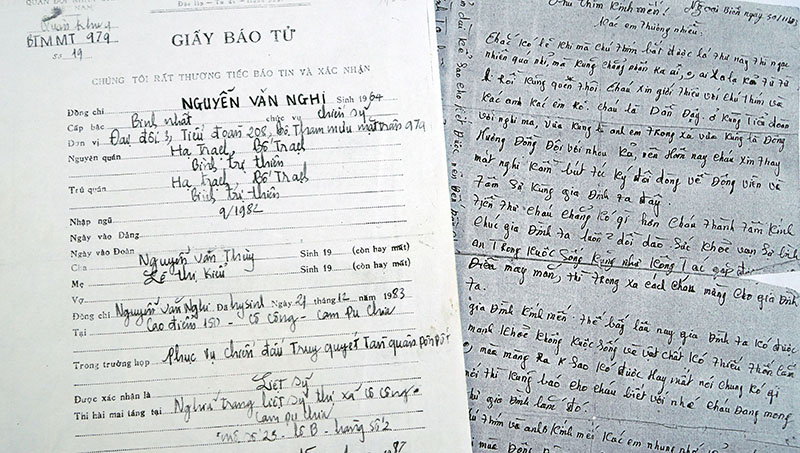 QUÂN ĐỘI NHÂN
NAM
Quân khu 4
BTMMT 979
Số 19
GIẤY BÁO TỬ
CHÚNG TÔI RẤT THƯƠNG TIẾC BÁO TIN VÀ XÁC NHẬN
Đồng chí NGUYỄN VĂN NGHỊ Sinh 1964
Cấp bậc Binh nhất chức vụ chiến sỹ
Đơn vị Đại đội 3, Tiểu đoàn 208, Bộ Tham mưu mặt trận 979
Nguyên quán Hạ Trạch, Bố Trạch
Bình Trị Thiên
Trú quán Hạ Trạch, Bố Trạch
Bình Trị Thiên
Nhập ngũ 9/1982
Ngày vào Đảng
Ngày vào Đoàn
Cha Nguyễn Văn Thùy Sinh 19 (còn hay mất)
Mẹ Lê Thị Kiều Sinh 19 (còn hay mất)
Vợ
Đồng chí Nguyễn Văn Nghị Đã hy sinh Ngày 21 tháng 12 năm 1983
Tại Cao điểm 150 - Cô Công - Cam Pu Chia
Trong trường hợp Phục vụ chiến đấu Truy quyết Tàn quân Pôn Pốt
Được xác nhận là Liệt sỹ
Thi hài mai táng tại Nghĩa trang liệt sỹ thị xã Cô Công
Cam Pu Chia
mộ số 23 - lô B - hàng số 2
1987
Ngoại Biên ngày 30/11/83
Chú Thím Kính mến!
Các em thương nhiều
Chắc Kó lẽ Khi mà chú thím bắt được lá thư này thì ngạc
nhiên quá nhỉ, mà Kũng chẳng phải Ka ai, ở ai xa lạ Kả từ từ
rồi Kũng quen thôi Cháu xin giới thiệu với chú thím và
Kác anh Kác em Kó. cháu là Dần Đây, ở Kùng Tiểu đoàn
với nghị mà, vừa Kùng là anh em Trong xã vừa Kũng là Đồng
Hương Đồng Đội với nhau Kả, nên Hôm nay cháu xin thay
mặt nghị Kầm bút tự Ký đôi dòng về Động viên và
Tâm Sự Kùng gia Đình ta đây
Tiên Thư cháu chẳng Kó gì hơn Cháu Thành Tâm Kính
Chúc gia Đình ta luôn 2 dồi dào Sức Khoẻ vạn Sự bình
an Trong Kuộc Sống Kũng như Công Tác gặp được
Điều may mắn, thì trong xa cách cháu mừng Cho gia Đình
ta.
gia Đình Kính mến. Thế bấy lâu nay gia Đình ta Kó được
mạnh Khoẻ Không Kuộc Sống về vật chất Kó Thiếu Thốn lắm
mùa màng Ra K Sao Kó được Hay mất nói chung Kó gì
thì Kũng bao cho cháu biết với nhé cháu Đang mong
gia Đình lắm đó.
Chú Thím và anh 2 Kính mến Kác em